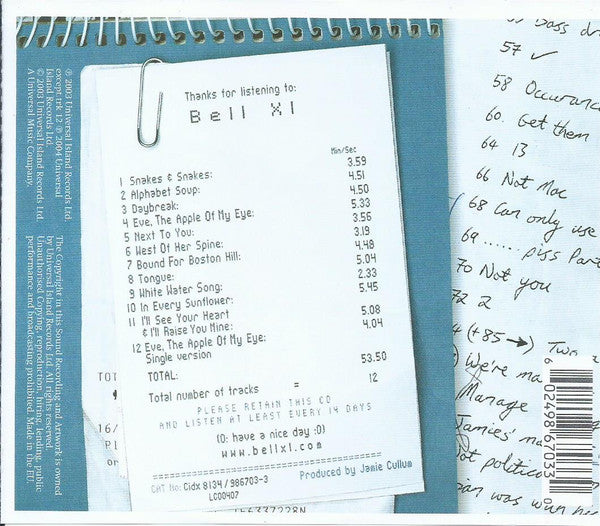 Thanks for listening to:
Bell X1
Min/Sec
1 Snakes & Snakes: 3.59
2 Alphabet Soup: 4.51
3 Daybreak: 4.50
4 Eve, The Apple Of My Eye: 5.33
5 Next To You: 3.56
6 West Of Her Spine: 3.19
7 Bound For Boston Hill: 4.48
8 Tongue: 5.04
9 White Water Song: 2.33
10 In Every Sunflower: 5.45
11 I'll See Your Heart
& I'll Raise You Mine: 5.08
12 Eve, The Apple Of My Eye: 4.04
Single version
TOTAL: 53.50
Total number of tracks = 12
PLEASE RETAIN THIS CD
AND LISTEN AT LEAST EVERY 14 DAYS
(O: have a nice day :O)
www.bellx1.com
Produced by Jamie Cullum
CAT No: Cidx 8134 / 986703-3
LC00407
℗ 2003 Universal Island Records Ltd.
except trk 12 ℗ 2004 Universal
Island Records Ltd.
© 2003 Universal Island Records Ltd.
A Universal Music Company.
The Copyright in this Sound Recording and Artwork is owned
by Universal Island Records Ltd. All rights reserved.
Unauthorised Copying, reproduction, hiring, lending, public
performance and broadcasting prohibited. Made in the EU.
TOT
16/
57 ✓
58 Occuranc
60. Get them
64 13
66 Not Mac
68 Can only use
69 ...... piss Part
70 Not you
72 2
4 (+85 →) Two
We're ma
Manage
Jamies' ma
not politico
an was wun he
6 02498 67033 0